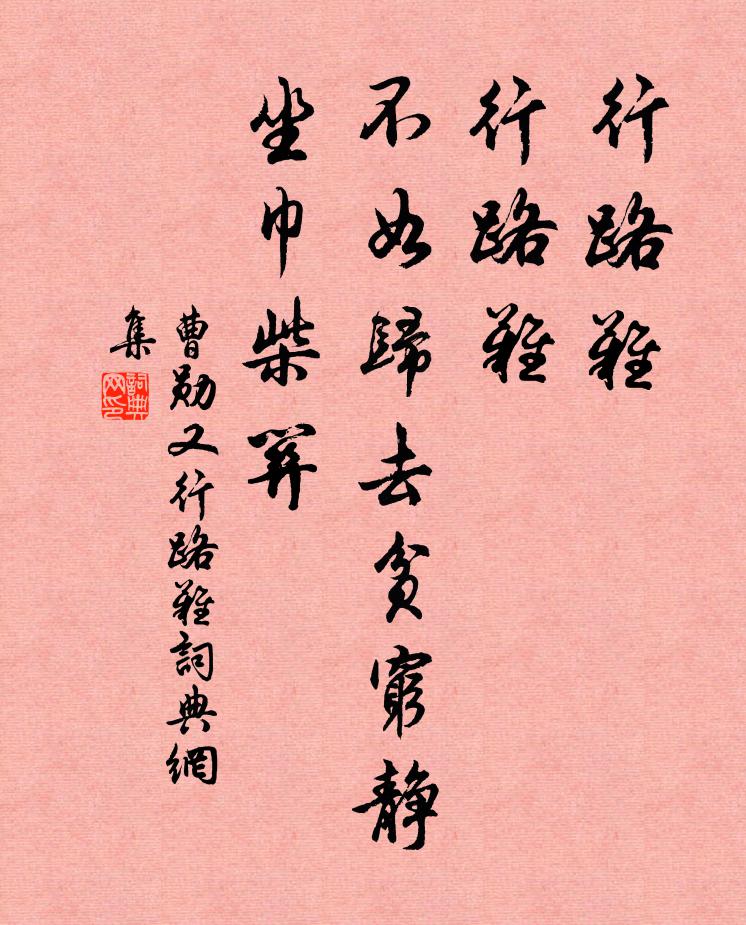 行路難
行路難
不如歸去貧窮靜
坐巾柴關
曹勛又行路難詞典網
集
詞典網印